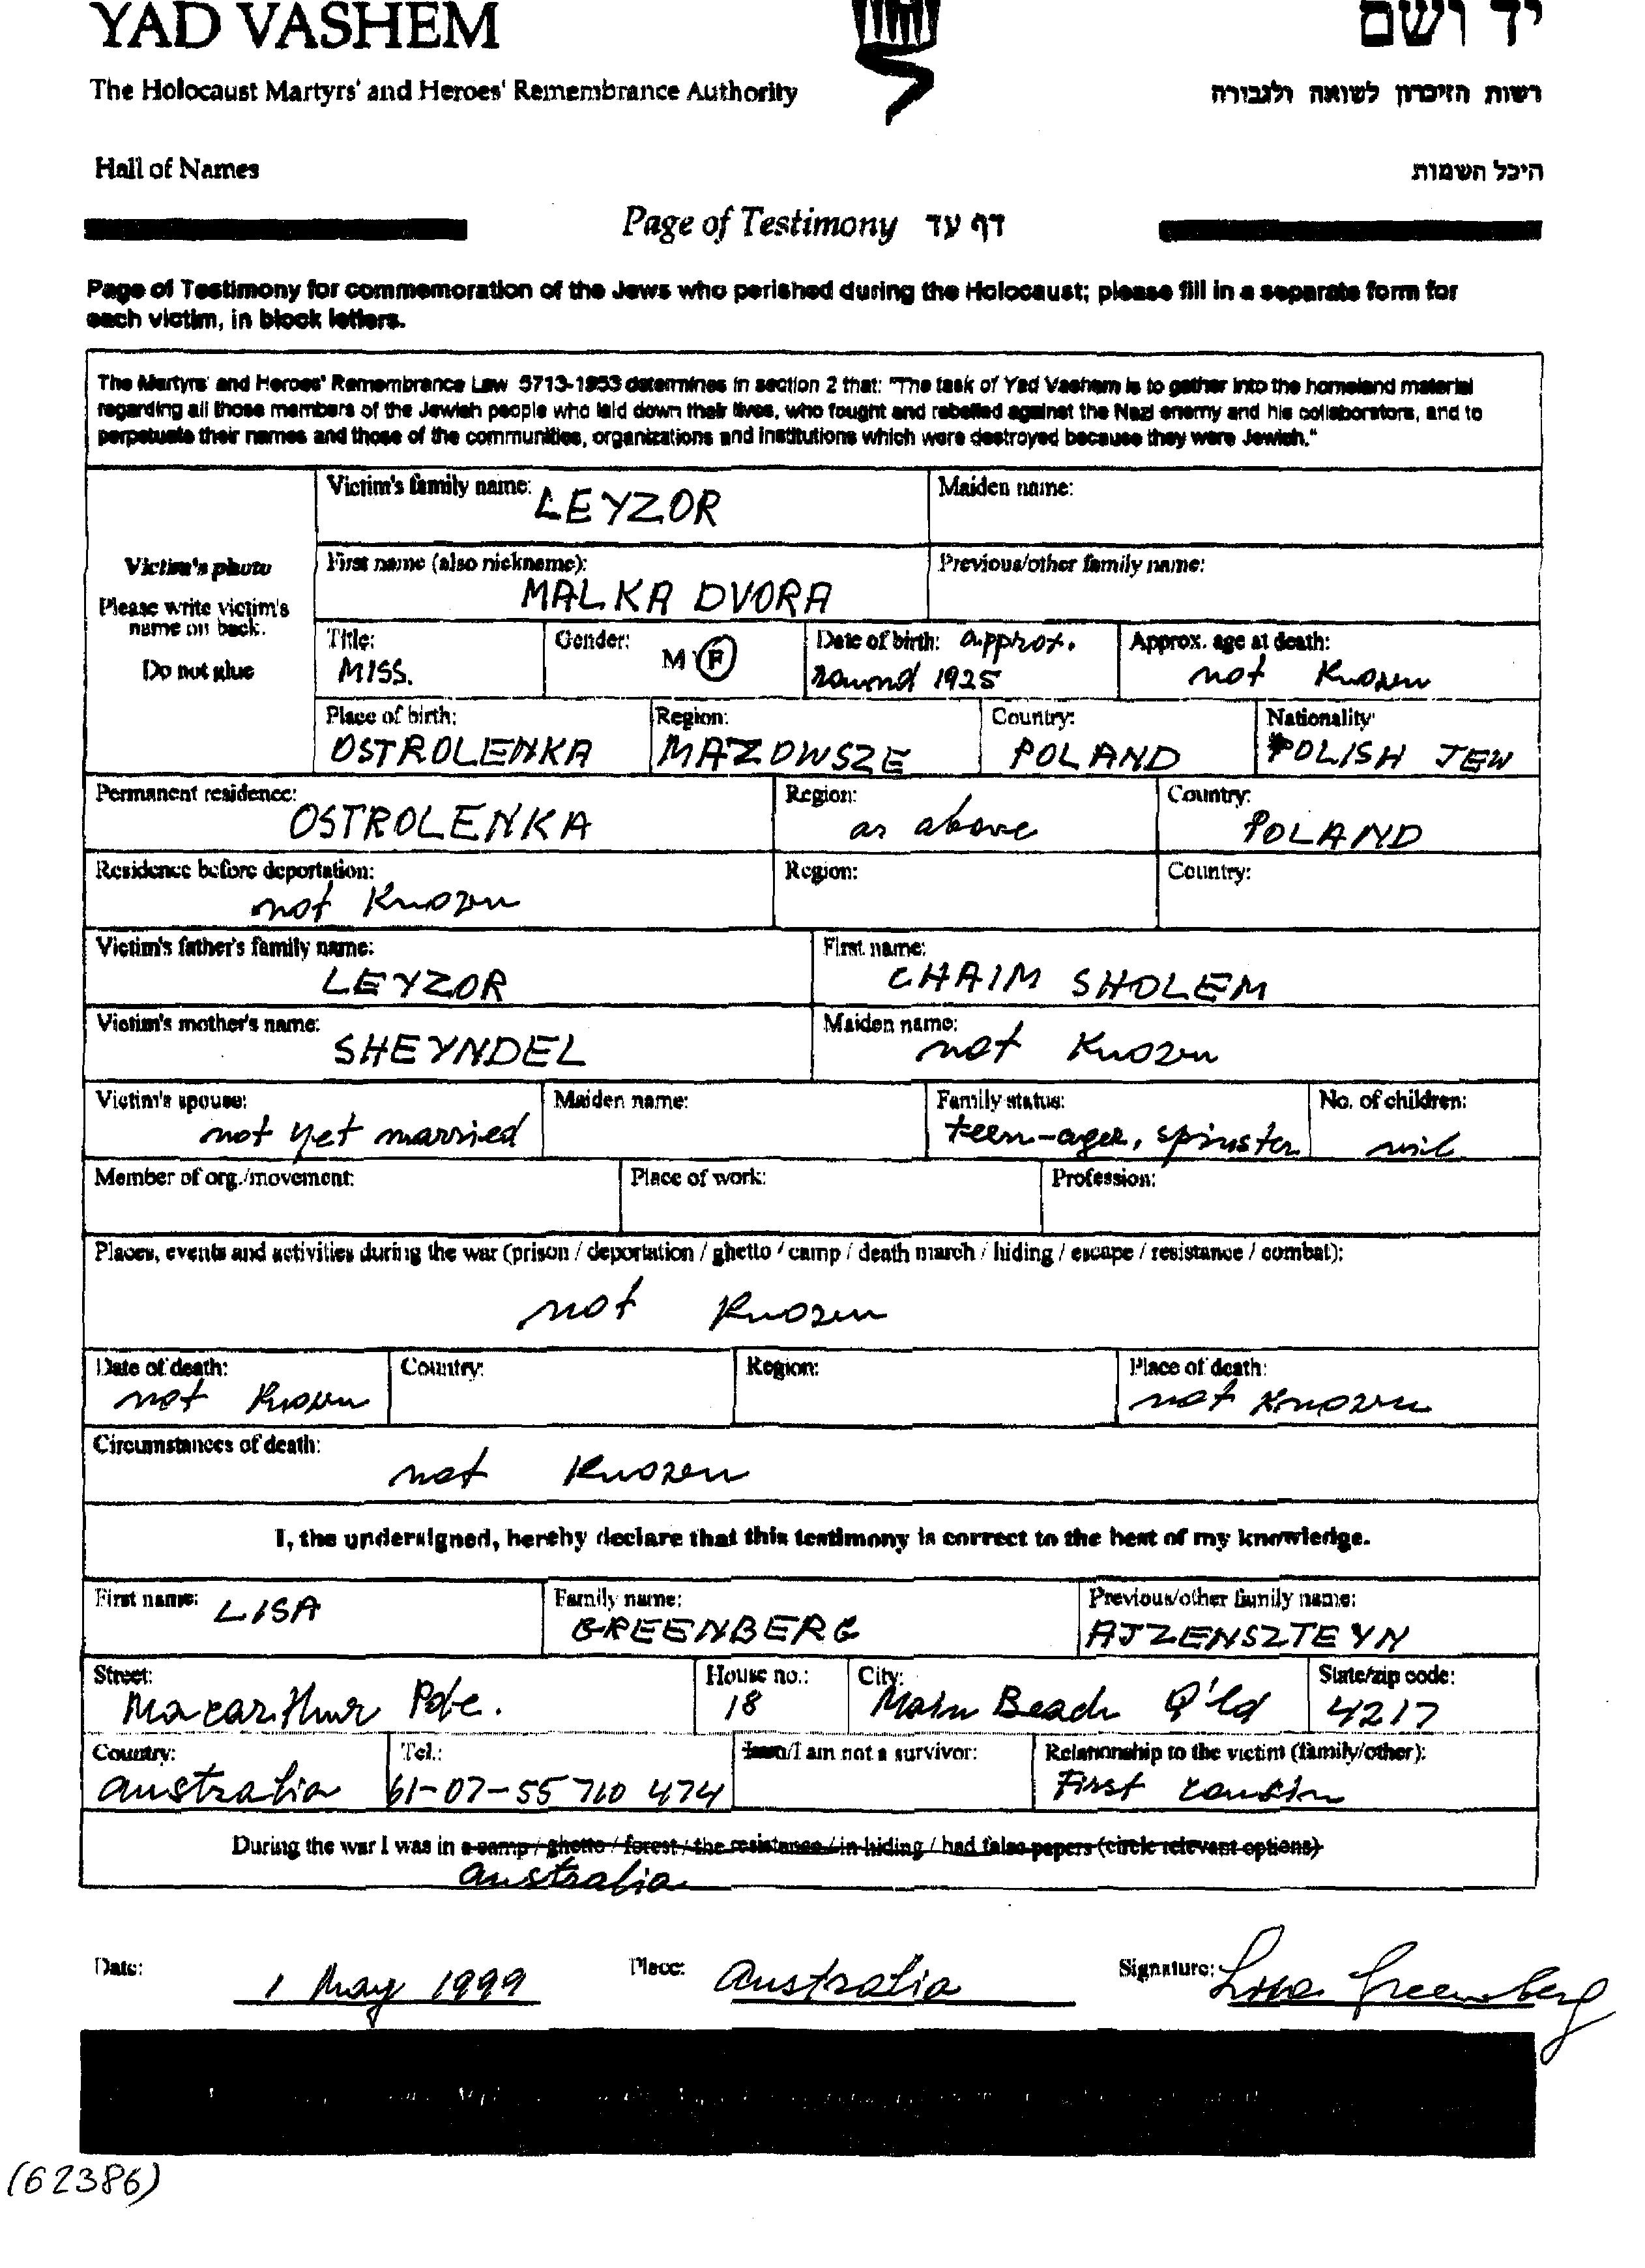 YAD VASHEM
יד ושם
The Holocaust Martyrs' and Heroes' Remembrance Authority
רשות הזיכרון לשואה ולגבורה
Hall of Names
היכל השמות
Page of Testimony דף עד
Page of Testimony for commemoration of the Jews who perished during the Holocaust; please fill in a separate form for
each victim, in block letters.
The Martyrs' and Heroes' Remembrance Law 5713-1953 determines in section 2 that: "The task of Yad Vashem is to gather into the homeland material
regarding all those members of the Jewish people who laid down their lives, who fought and rebelled against the Nazi enemy and his collaborators, and to
perpetuate their names and those of the communities, organizations and institutions which were destroyed because they were Jewish."
Victim's photo
Please write victim's
name on back.
Do not glue
Victim's family name: LEYZOR
Maiden name:
First name (also nickname): MALKA DVORA
Previous/other family name:
Title: MISS.
Gender: M F
Date of birth: approx.
round 1925
Approx. age at death: not known
Place of birth: OSTROLENKA
Region: MAZOWSZE
Country: POLAND
Nationality: POLISH JEW
Permanent residence: OSTROLENKA
Region: as above
Country: POLAND
Residence before deportation: not known
Region:
Country:
Victim's father's family name: LEYZOR
First name: CHAIM SHOLEM
Victim's mother's name: SHEYNDEL
Maiden name: not known
Victim's spouse: not yet married
Maiden name:
Family status: teen-ager, spinster
No. of children: nil
Member of org./movement:
Place of work:
Profession:
Places, events and activities during the war (prison / deportation / ghetto / camp / death march / hiding / escape / resistance / combat):
not known
Date of death: not known
Country:
Region:
Place of death: not known
Circumstances of death: not known
I, the undersigned, hereby declare that this testimony is correct to the best of my knowledge.
First name: LISA
Family name: GREENBERG
Previous/other family name: AJZENSZTEYN
Street: Macarthur Pde.
House no.: 18
City: Main Beach Q'ld
State/zip code: 4217
Country: Australia
Tel.: 61-07-55 710 474
I am/I am not a survivor:
Relationship to the victim (family/other): First cousin
During the war I was in a camp / ghetto / forest / the resistance / in hiding / had false papers (circle relevant options)
Australia
Date: 1 May 1999
Place: Australia
Signature: Lisa Greenberg
(62386)